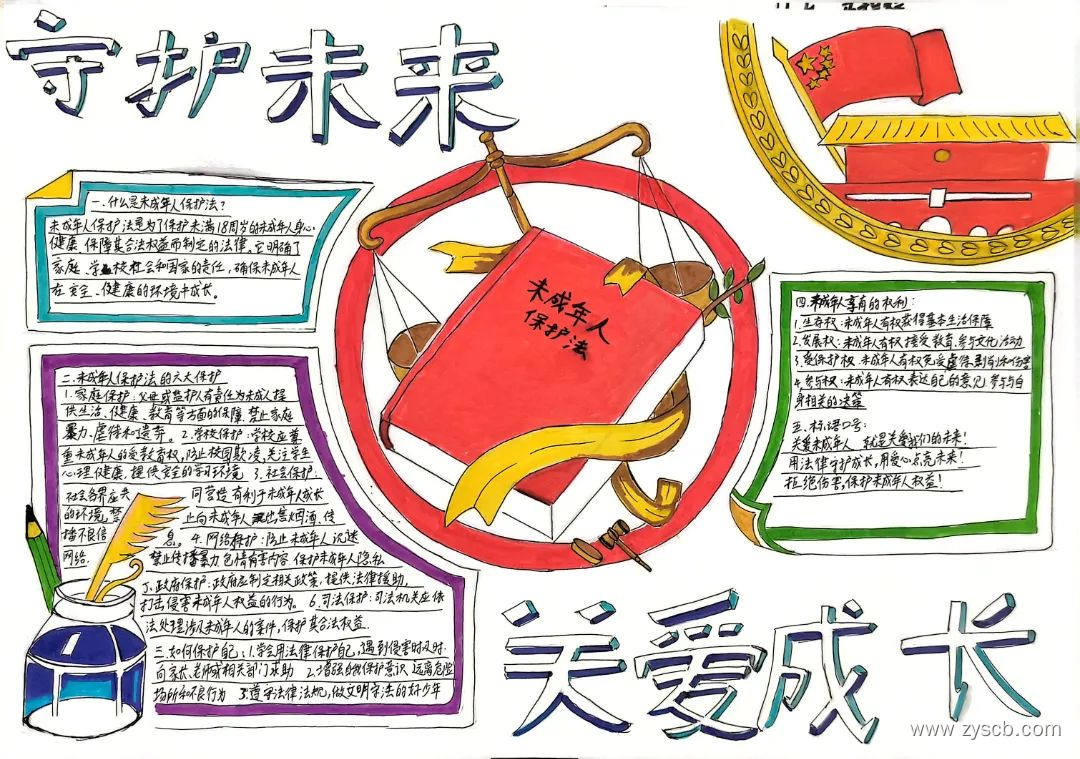 守护未来
一.什么是未成年人保护法?
未成年人保护法是为了保护未满18周岁的未成年人身心
健康、保障其合法权益而制定的法律。它明确了
家庭、学校社会和国家的责任,确保未成年人
在安全、健康的环境中成长。
未成年人
保护法
二.未成年人保护法的六大保护
1.家庭保护:父母或监护人有责任为未成人提
供生活、健康、教育等方面的保障,禁止家庭
暴力、虐待和遗弃。2.学校保护:学校应尊
重未成年人的受教育权,防止校园欺凌,关注学生
心理健康,提供安全的学习环境 3.社会保护:
社会各界应共 同营造有利于未成年人成长
的环境,禁 止向未成年人出售烟酒、传
播不良信 息。4.网络保护:防止未成年人沉迷
网络. 禁止传播暴力、色情有害内容.保护未成年人隐私
政府保护:政府应制定相关政策,提供法律援助,
打击侵害未成年人权益的行为。6.司法保护:司法机关应依
法处理涉及未成年人的案件,保护其合法权益.
三.如何保护自己:1.学会用法律保护自己,遇到侵害时及时
向家长、老师或相关部门求助 2.增强自我保护意识 远离危险
场所和不良行为 3.遵守法律法规,做文明守法的好少年
四.未成年人享有的权利:
1.生存权:未成年人有权获得基本生活保障
2.发展权:未成年人有权接受教育、参与文化活动
3.受保护权.未成年人有权免受虐待、剥削和伤害
4.参与权:未成年人有权表达自己的意见,参与与自
身相关的决策
五.标语口号:
关爱未成年人 就是关爱我们的未来!
用法律守护成长,用爱心点亮未来!
拒绝伤害,保护未成年人权益!
关爱成长
www.zyscb.com